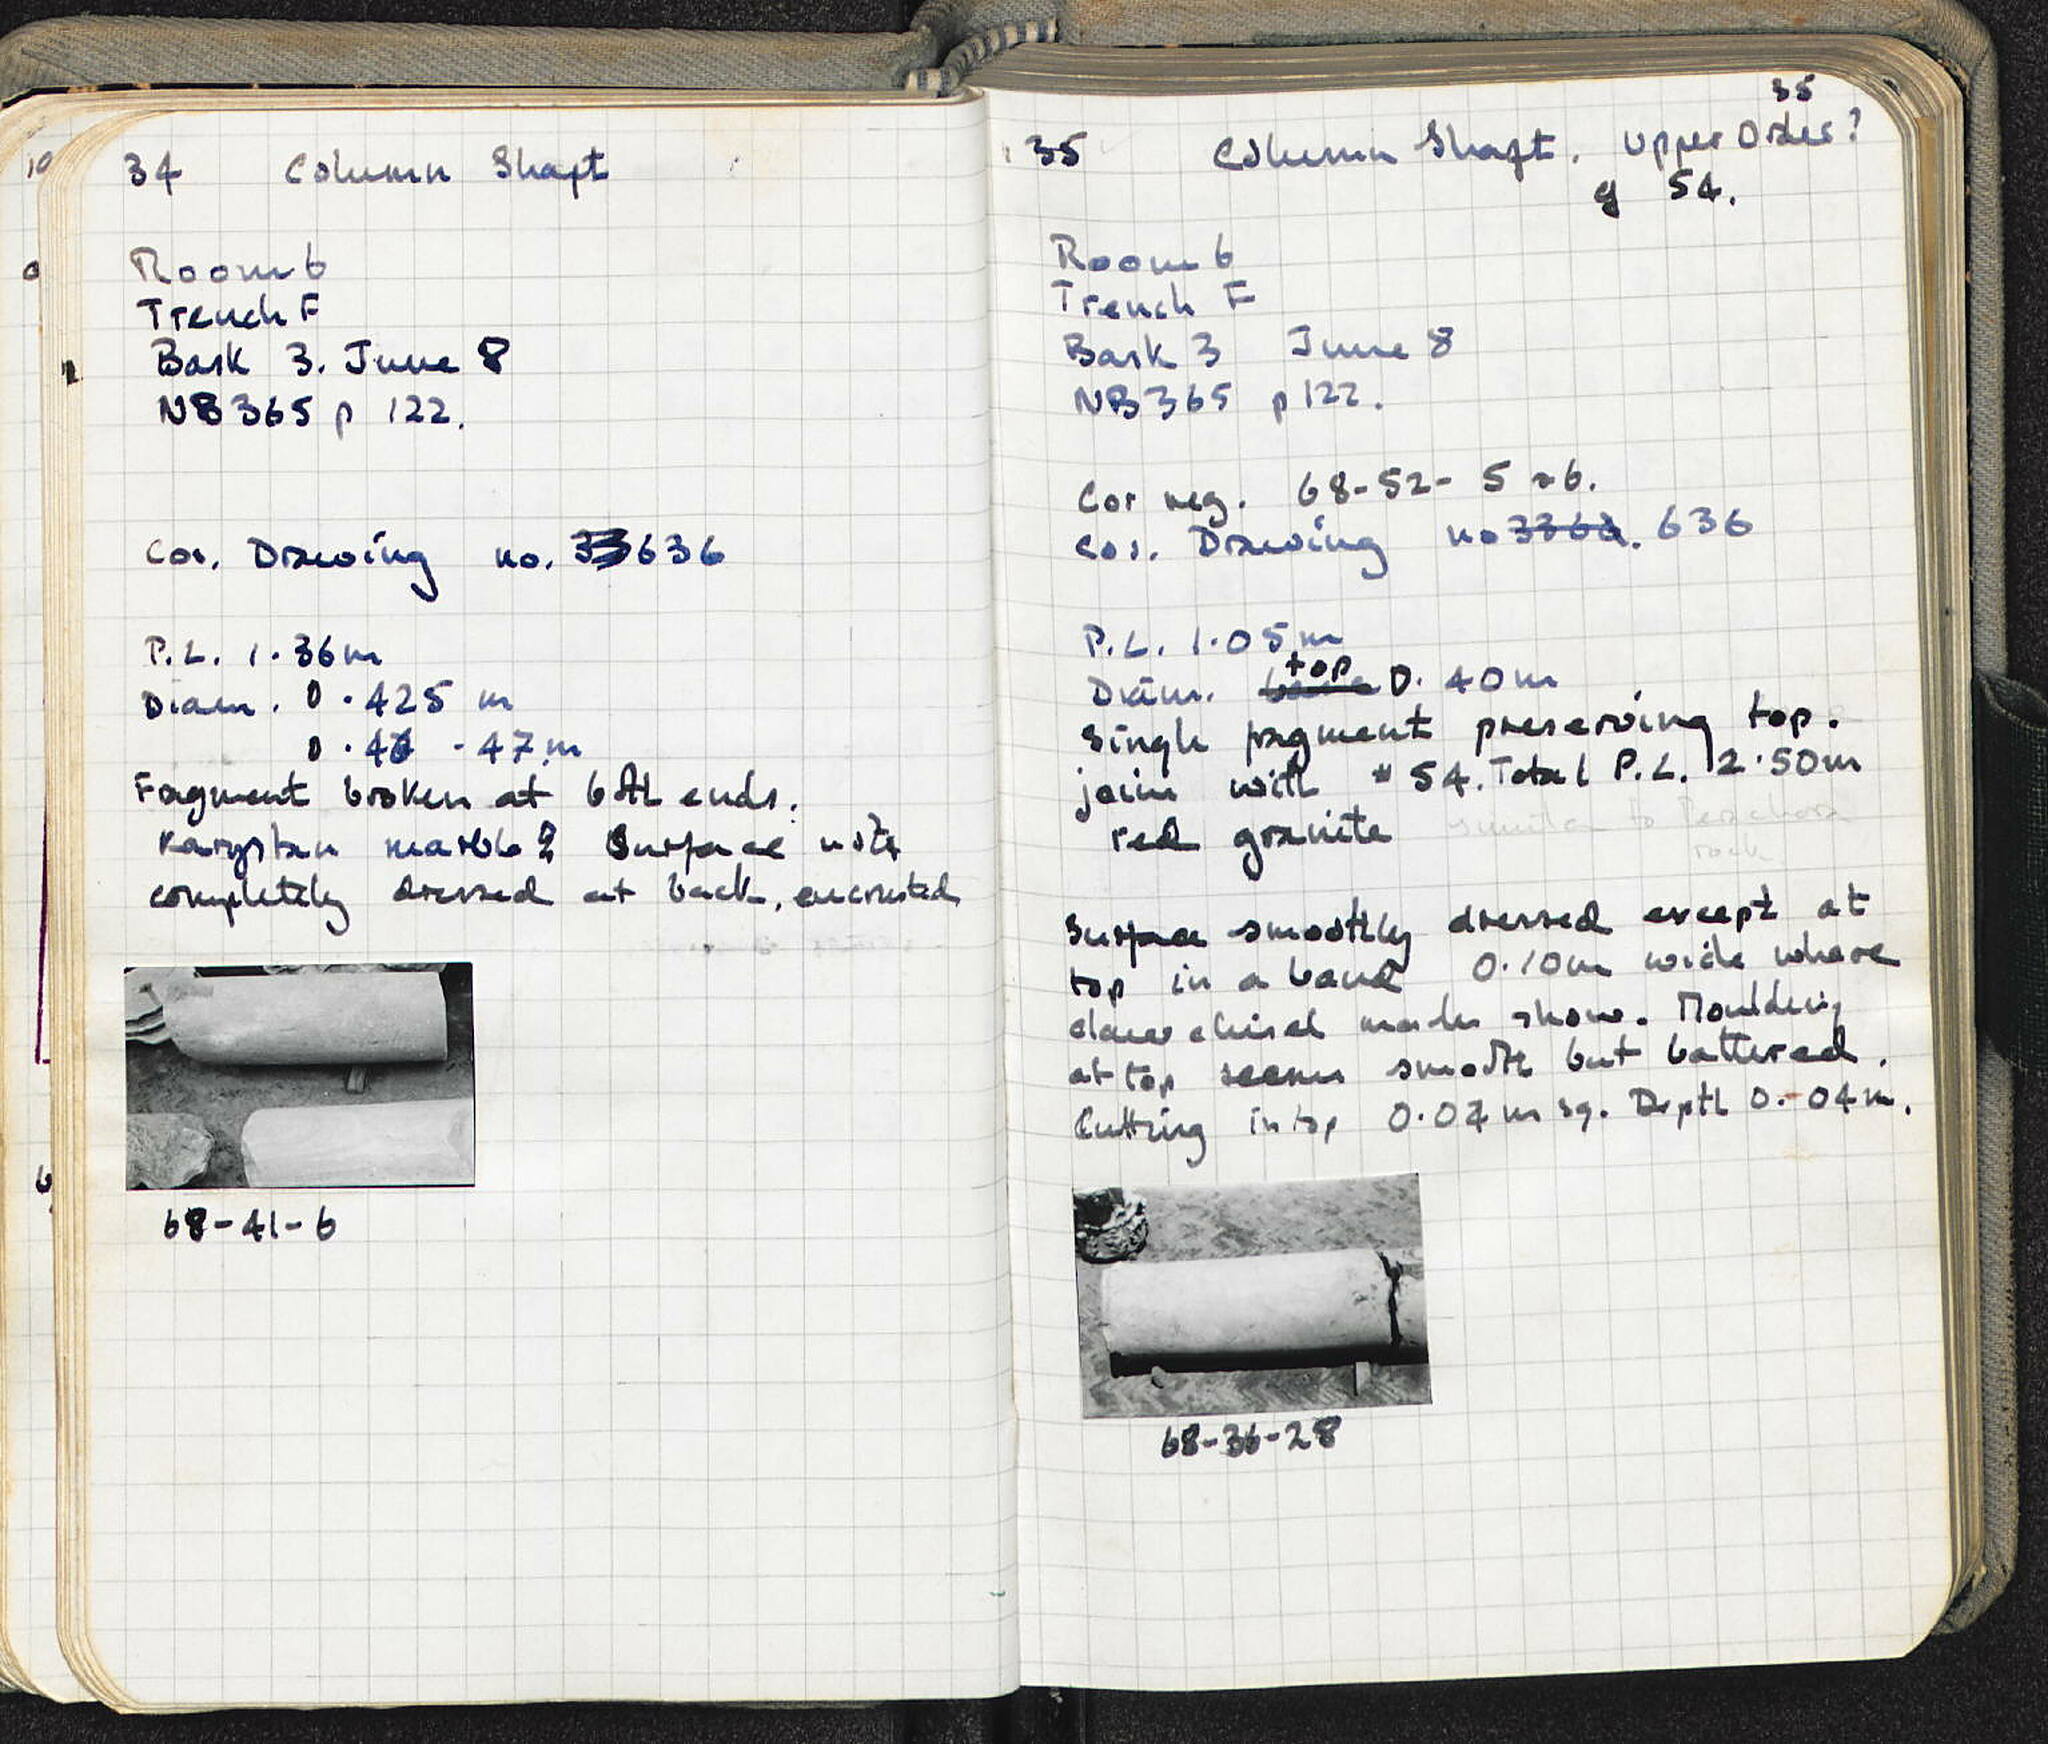 34 Column Shaft
Room 6
Trench F
Bask 3. June 8
NB 365 p 122.
Cor. Drawing no. 33636
P.L. 1.36m
Diam. 0.425 m
0.46 - 47m
Fragment broken at both ends.
Karystan marble? Surface not
completely dressed at back, encrusted
68-41-6
35
35 Column Shaft. Upper Order?
cf 54.
Room 6
Trench F
Bask 3 June 8
NB 365 p 122.
Cor neg. 68-52- 5 + 6.
Cor. Drawing no 636
P.L. 1.05m
top
Diam. 0.40m
Single fragment preserving top.
joins with # 54. Total P.L. 2.50m
red granite similar to Perachora
rock
Surface smoothly dressed except at
top in a band 0.10m wide where
claw chisel marks show. Moulding
at top seems smooth but battered.
Cutting in top 0.04m sq. Depth 0.04m.
68-36-28